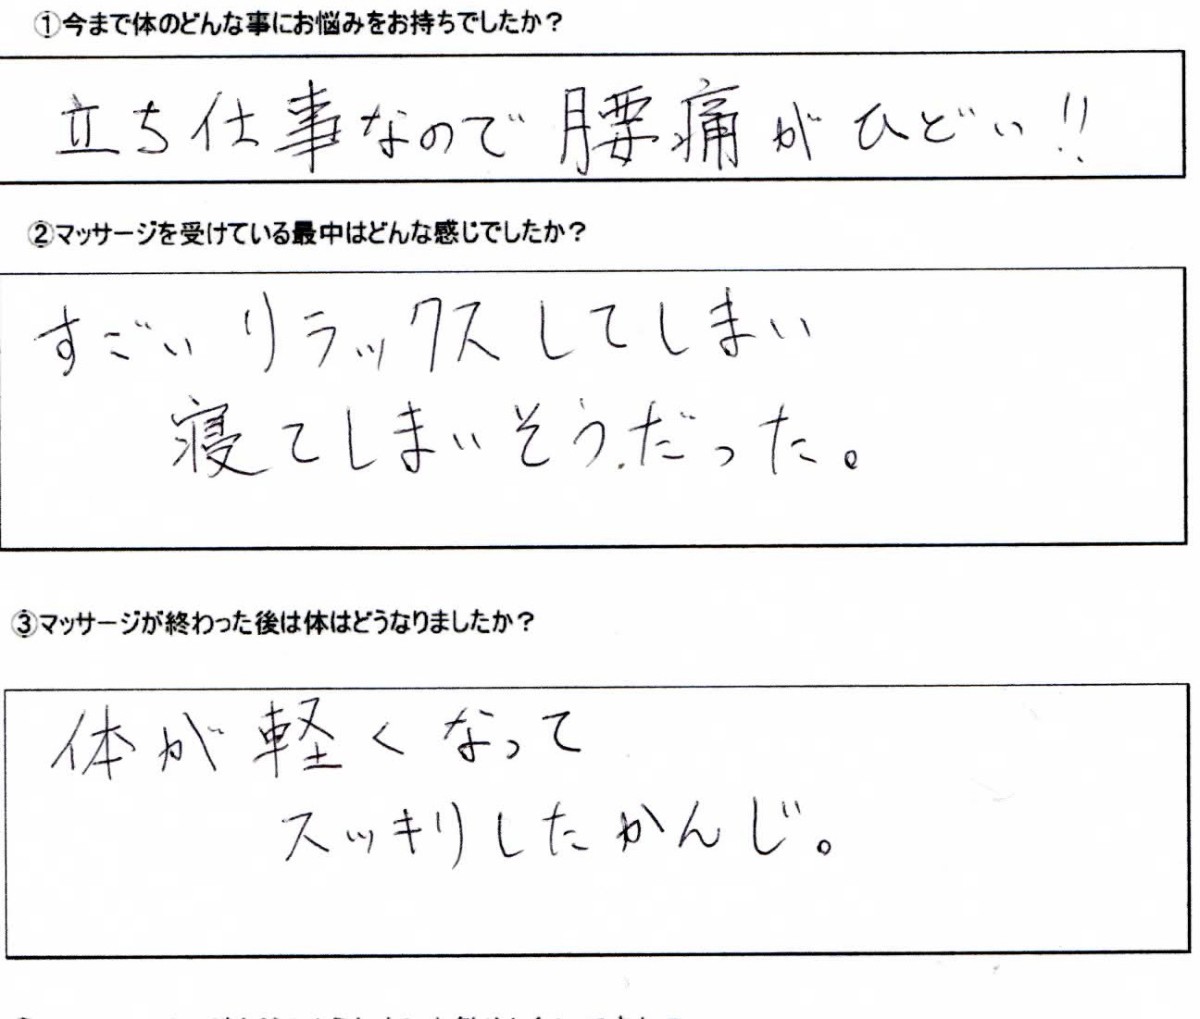 ①今まで体のどんな事にお悩みをお持ちでしたか?
立ち仕事なので腰痛がひどい!!
②マッサージを受けている最中はどんな感じでしたか?
すごいリラックスしてしまい
寝てしまいそうだった。
③マッサージが終わった後は体はどうなりましたか?
体が軽くなって
スッキリしたかんじ。